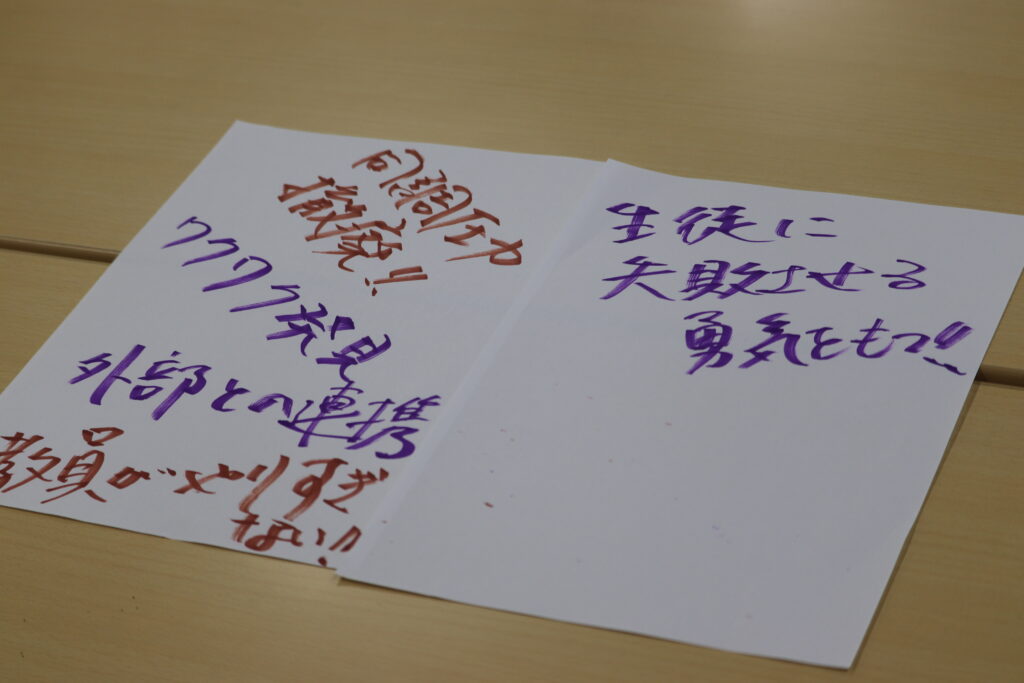 同調圧力
撤廃!!
ワクワク発見
外部との連携
教員がやりすぎ
ない!!
生徒に
失敗させる
勇気をもつ!!